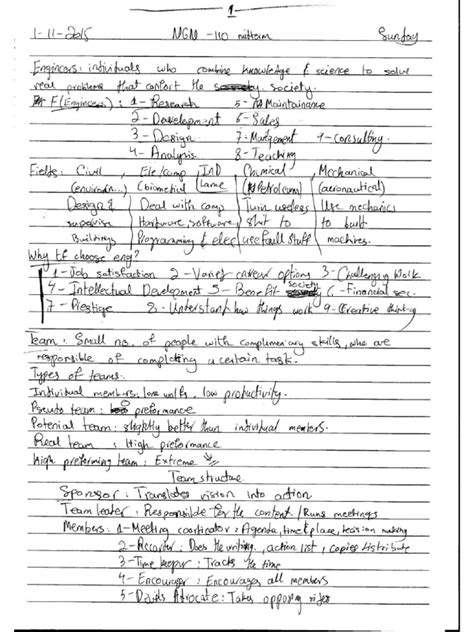 1
1-11-2015 NGN -110 midterm Sunday
Engineers: individuals who combine knowledge & science to solve
real problems that confort the society.
F(Engineers): 1- Research 5- Maintainance
2- Development 6- Sales
3- Design 7- Mangement 9- consulting.
4- Analysis 8- Teaching
Fields: Civil Ele/comp IND Chmical Mechanical
(environ...) (biomectical) Lame (Petroleum) (aeronautical)
Design & Deal with comp Turn useless Use mechanics
supervise Hardware, software shit to to built
Buildings Programming & elec usefull stuff machines.
Why tf choose eng?
1- Job satisfaction 2- Variety career options 3- Challenging Work
4- Intellectual Development 5- Benefit society 6- Financial sec.
7- Prestige 8- Understant how things work 9- Creative thinking
Team: Small no. of people with complementary skills, who are
responsible of completing a certain task.
Types of teams:
Individual members: lone wolfs, low productivity.
Pseuto team: preformance
Potenial team: slightly better than intividual members.
Real team: High preformance
High preforming team: Extreme
Team structue
Sponsor: Translates vision into action
Team leater: Responsible for the content / Runs meetings
Members: 1- Meeting coorticator: Agenda, time & place, decision making
2- Recorter: Does the writing, action list, copies distribute
3- Time keeper: Tracks the time
4- Encourager: Encourages all members
5- Devils Advocate: Takes opposing